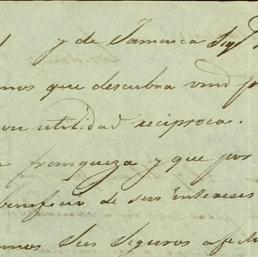 y de Jamaica
mos que descubra vmd
on utilidad reciproca.
franqueza y que por
beneficio de sus intereses
mos Sus Seguros afec